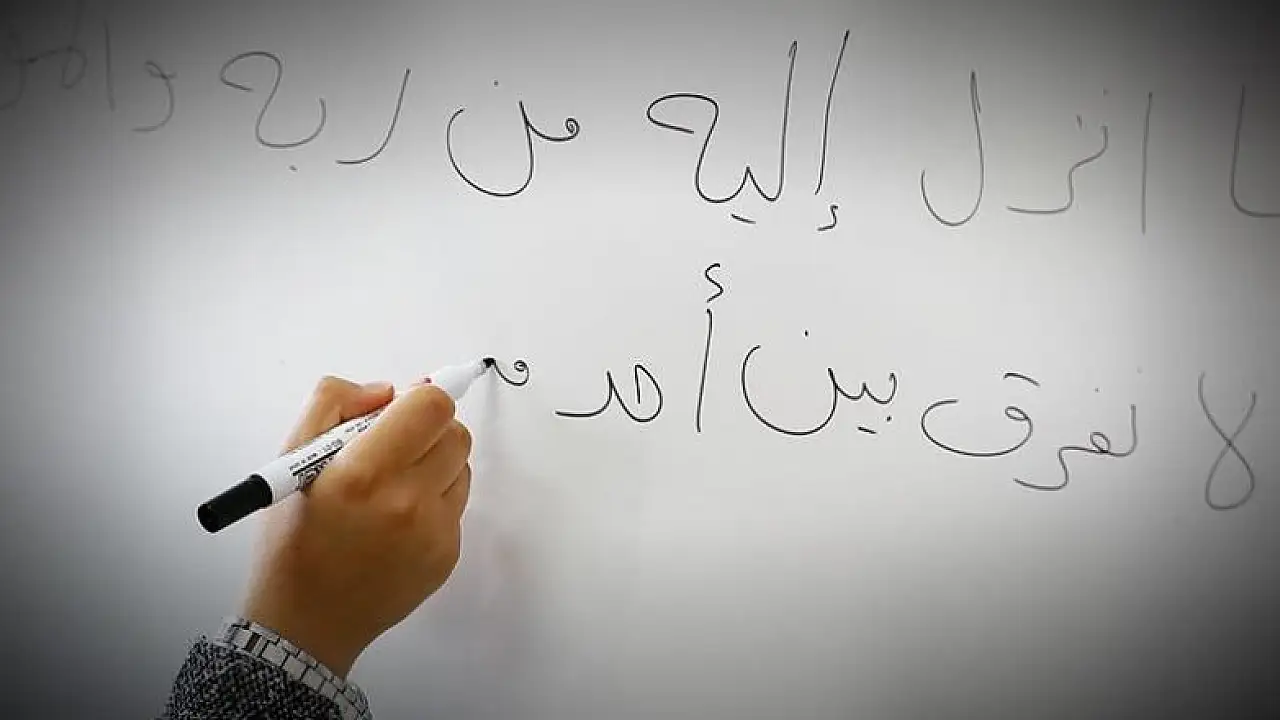 ا انزل إليه من ربه والمو
لا نفرق بين أحد م